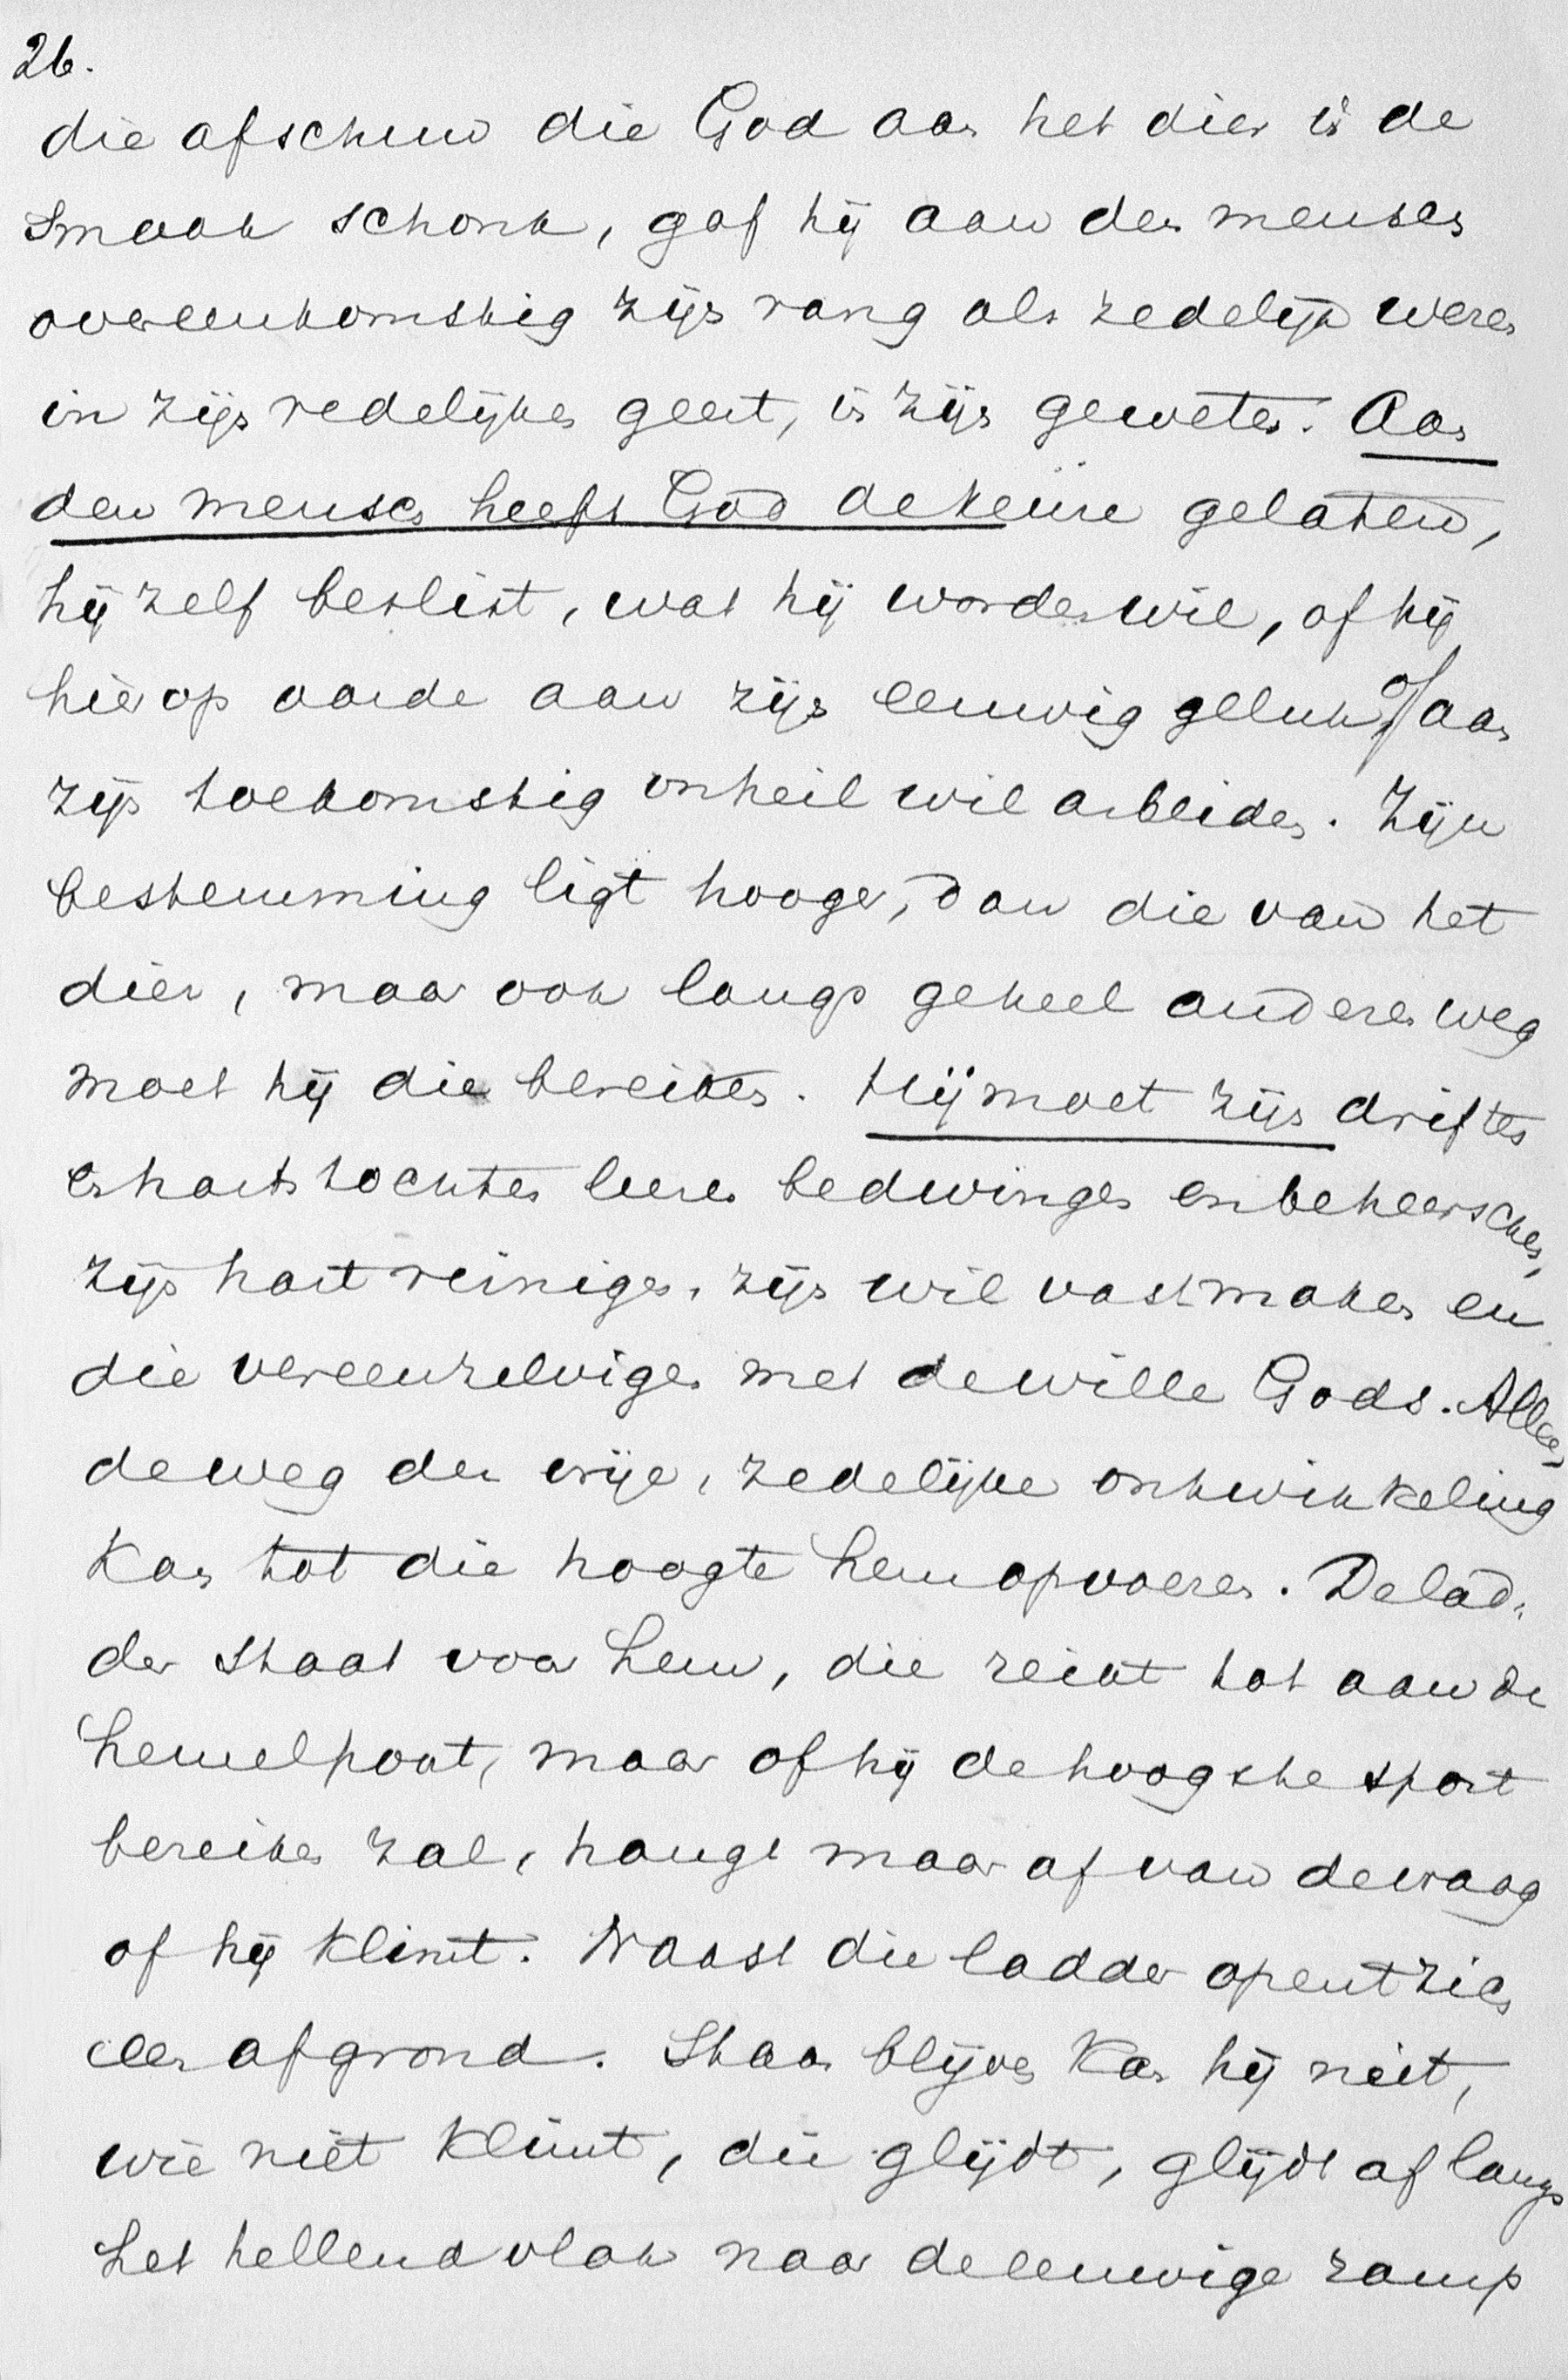 26.
die afschuw die God aan het dier in de
smaak schonk, gaf hij aan den mensch
overeenkomstig zijn rang als zedelijk wezen
in zijn redelijken geest, in zijn geweten. Aan
den mensch heeft God de keuze gelaten,
hij zelf beslist, wat hij worden wil, of hij
hier op aarde aan zijn eeuwig geluk of aan
zijn toekomstig onheil wil arbeiden. Zijn
bestemming ligt hooger, dan die van het
dier, maar ook langs geheel anderen weg
moet hij die bereiken. Hij moet zijn driften
en hartstochten leeren bedwingen en beheerschen,
zijn hart reinigen, zijn wil vastmaken en
die vereenzelvigen met de wille Gods. Alleen
de weg der vrije, zedelijke ontwikkeling
kan tot die hoogte hem opvoeren. De lad-
der staat voor hem, die reikt tot aan de
hemelpoort, maar of hij de hoogste sport
bereiken zal, hangt maar af van de vraag
of hij klimt. Naast die ladder opent zich
een afgrond. Staan blijven kan hij niet,
wie niet klimt, die glijdt, glijdt af langs
het hellend vlak naar de eeuwige ramp